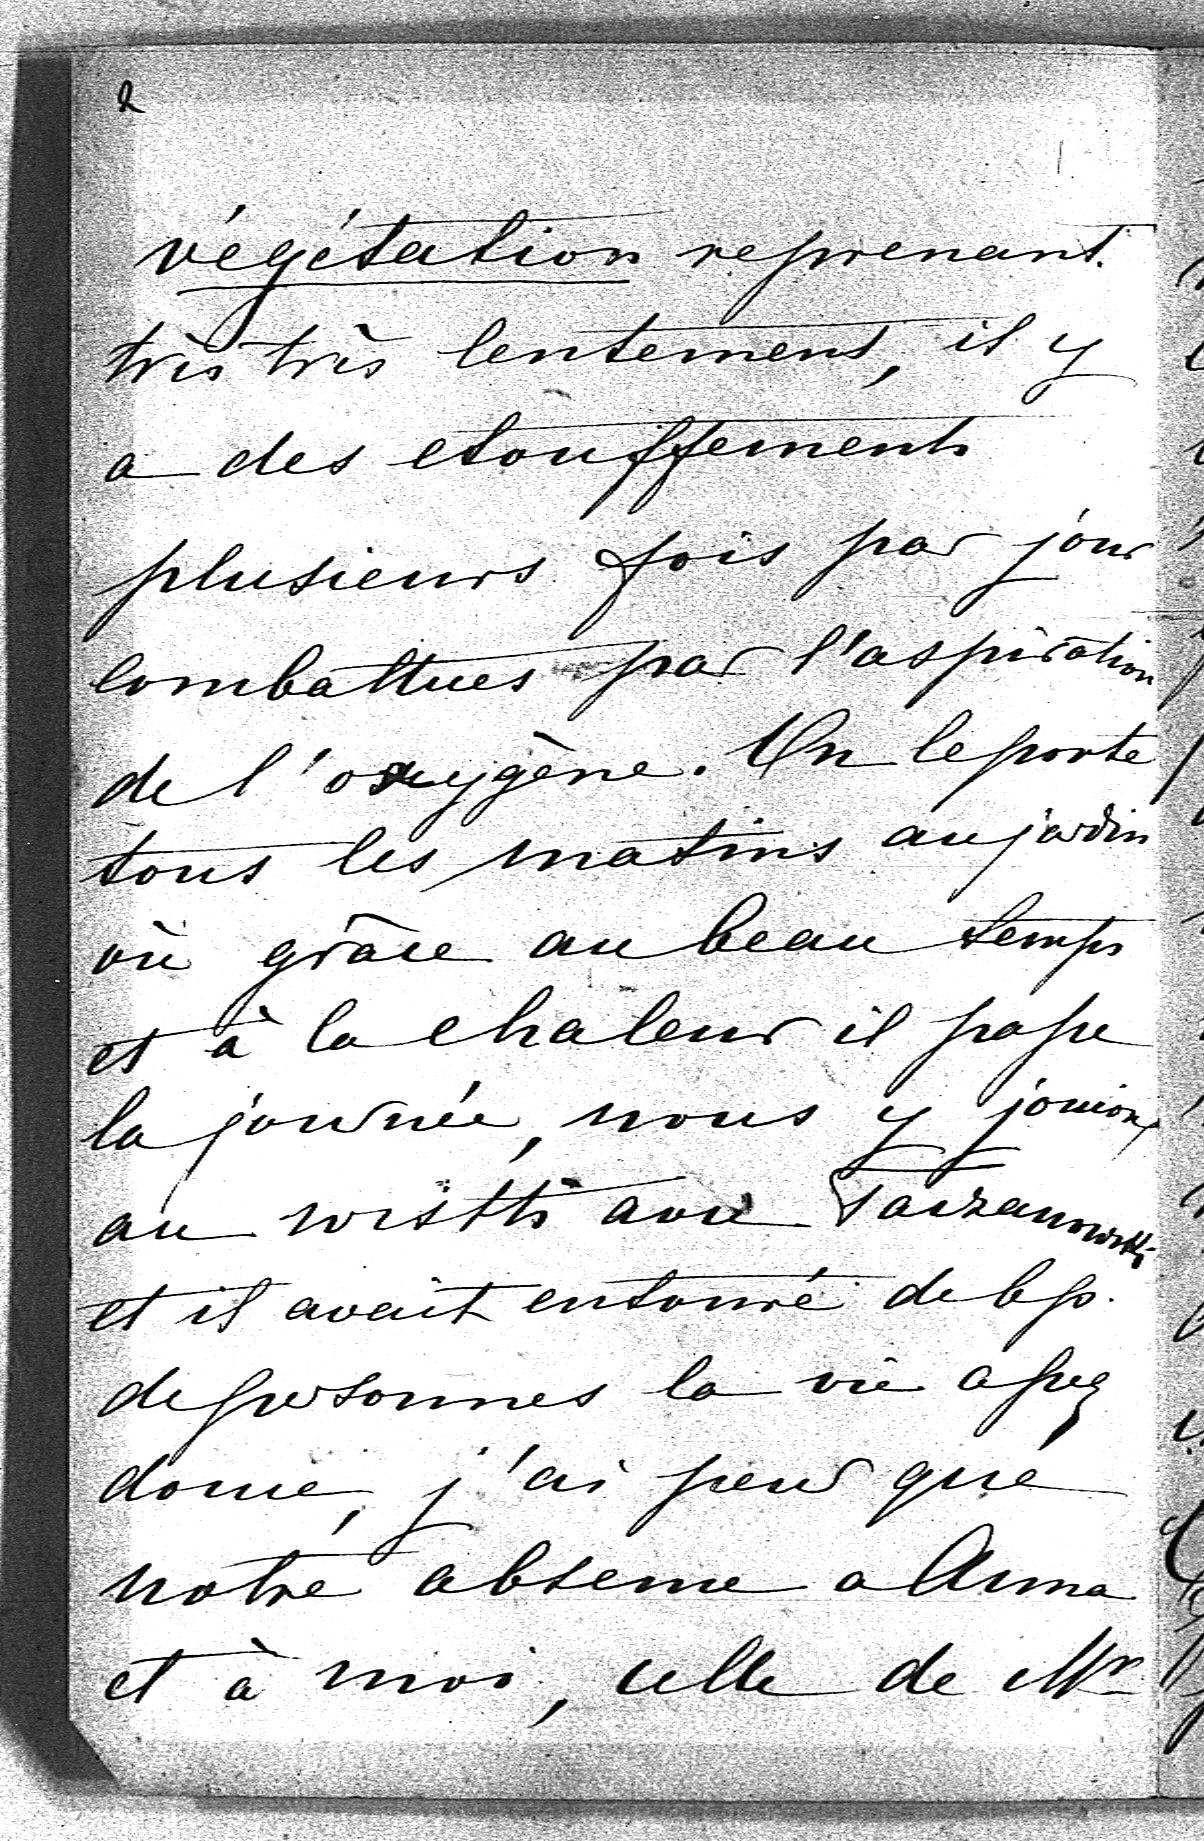 2
végétation reprenant
très très lentement, il y
a des etouffements
plusieurs fois par jour
combattues par l'aspiration
de l'oxygène. On le porte
tous les matins au jardin
où grâce au beau temps
et à la chaleur il passe
la journée, nous y jouions
au wistth avec
et il avait entouré de bp.
de personnes la vie assez
douce, j'ai peur que
notre absence a Anna
et à moi, celle de Mr